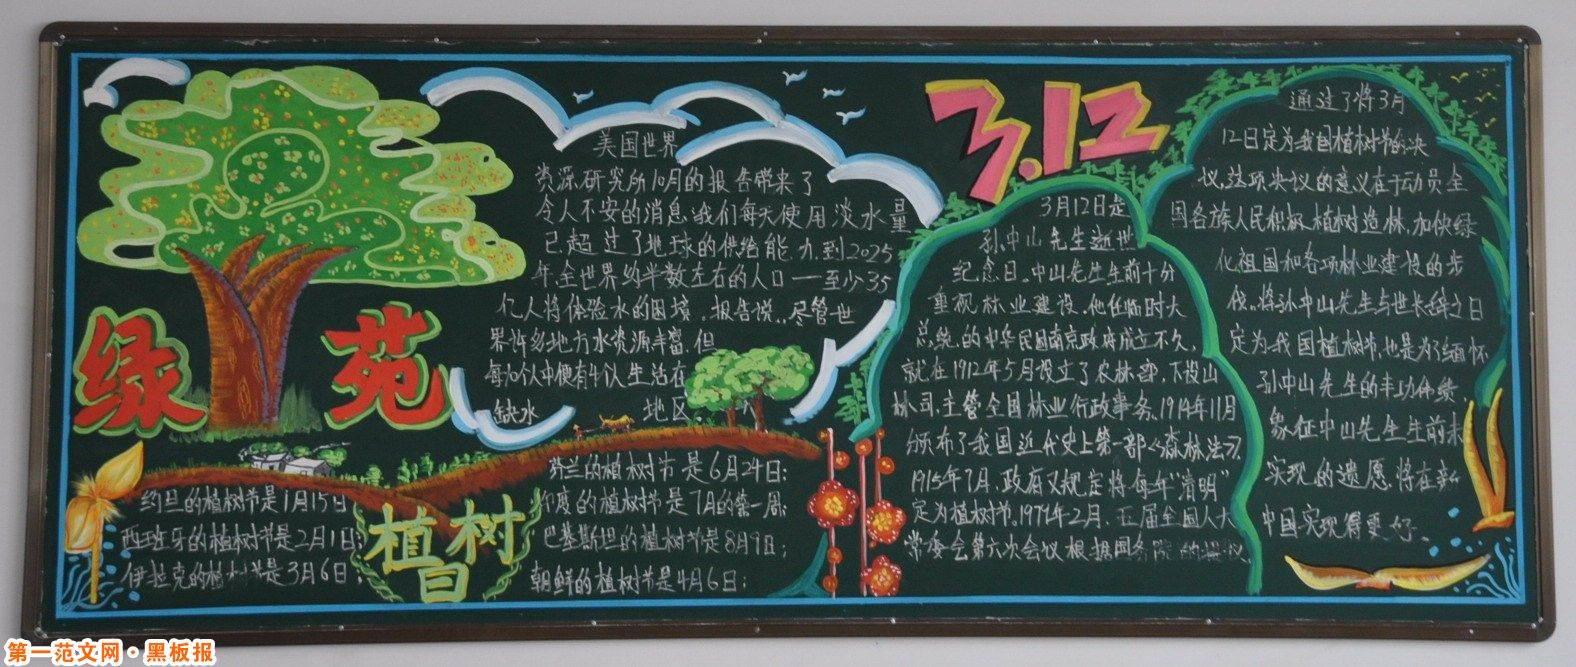 绿苑
美国世界
资源研究所10月的报告带来了
令人不安的消息:我们每天使用淡水量
已超过了地球的供给能力到2025
年,全世界约半数左右的人口一至少35
亿人将体验水的困境.报告说,尽管世
界许多地方水资源丰富,但
每10个人中便有4个人生活在
缺水 地区
约旦的植树节是1月15日
西班牙的植树节是2月1日;
伊拉克的植树节是3月6日;
植树日
芬兰的植树节是6月24日;
印度的植树节是7月的第一周;
巴基斯坦的植树节是8月9日;
朝鲜的植树节是4月6日;
3.12
3月12日是
孙中山先生逝世
纪念日.中山先生生前十分
重视林业建设.他任临时大
总统的中华民国南京政府成立不久,
就在1912年5月设立了农林部,下设山
林司,主管全国林业行政事务.1914年11月
颁布了我国近代史上第一部《森林法》.
1915年7月,政府又规定将每年"清明"
定为植树节.1979年2月,五届全国人大
常委会第六次会议根据国务院的提议
通过了将3月
12日定为我国植树节的决
议,这项决议的意义在于动员全
国各族人民积极植树造林,加快绿
化祖国和各项林业建设的步
伐.将孙中山先生与世长辞之日
定为我国植树节,也是为了缅怀
孙中山先生的丰功伟绩,
象征中山先生生前未
实现的遗愿将在新
中国实现得更好.
第一范文网·黑板报